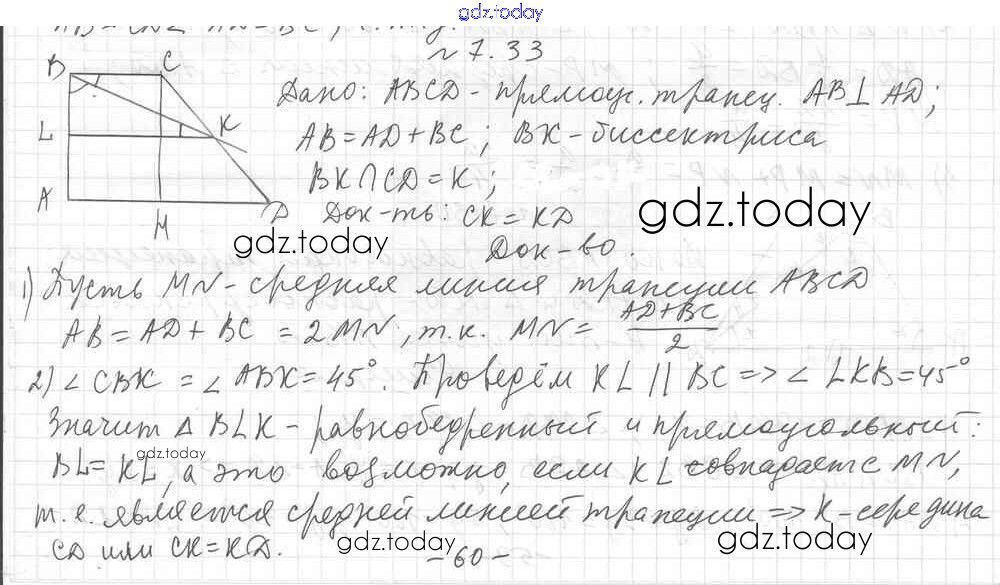 gdz.today
№ 7.33
B C
L K
A M D
Дано: ABCD - прямоуг. трапец. AB⊥AD;
AB = AD + BC ; BK - биссектриса
BK∩CD = K ;
Док-ть: CK = KD
gdz.today
gdz.today
Док-во:
1) Пусть MN - средняя линия трапеции ABCD
AB = AD + BC = 2MN, т.к. MN = (AD+BC)/2
2) ∠CBK = ∠ABK = 45°. Проведём KL || BC => ∠LKB = 45°
Значит △BLK - равнобедренный и прямоугольный:
gdz.today
BL = KL, а это возможно, если KL совпадает с MN,
т.е. является средней линией трапеции => K - середина
CD или CK = KD.
gdz.today
gdz.today
- 60 -